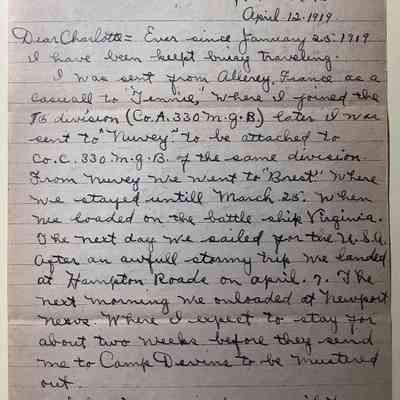 April-12-1919.
Dear Charlotte= Ever since January 25-1919
I have been keept buisy traveling.
I was sent from Allerey, France as a
casuall to "Tennie," where I joined the
86 division (Co. A. 330 M.G.B.) later I was
sent to "Nuvey" to be attached to
Co. C. 330 M.G.B. of the same division.
From Nuvey we went to "Brest" where
we stayed untill March 25- When
we loaded on the battle ship Virginia.
The next day we sailed for the U.S.A.
After an awfull stormy trip we landed
at Hampton Roads on april. 7. The
next morning we onloaded at Newport
News. Where I expect to stay for
about two weeks before they send
me to Camp Devins to be mustered
out.